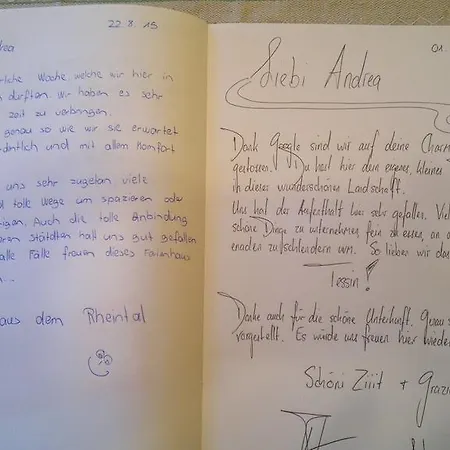 22.8.15
rea
rliche Woche, welche wir hier in
n dürften. Wir haben es sehr
zeit zu verbringen.
genau so wie wir sie erwartet
dentlich und mit allem Komfort
uns sehr zugetan viele
d tolle Wege um spazieren oder
igen. Auch die tolle Anbindung
eren städten hatt uns gut gefallen
alle Fälle freuen dieses Ferienhaus
n...
aus dem Rheintal
01.
Liebi Andrea
Dank Google sind wir auf deine Charm
gestossen. Du hast hier dein eigenes, kleines
in dieses wunderschönen Landschaft.
Uns hat der Aufenthalt hier sehr gefallen. Viel
schöne Dinge zu unternehmen, fein zu essen, an d
enaden zu schlendern usw. So lieben wir das
Tessin!
Danke auch für die schöne Unterkunft. Genau s
vorgestellt. Es würde uns freuen hier wieder
Schöni Ziiit + Grazi